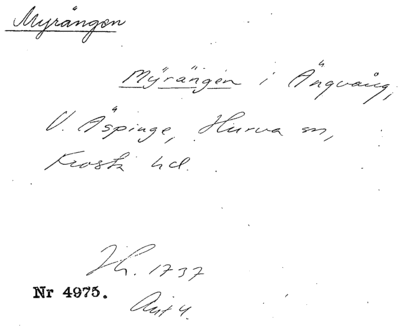 Myrängen
Myrängen i Ängvång,
V. Äspinge, Hurva sn,
Frosta hd.
Jh. 1737
Nr 4975.
Akt 4.